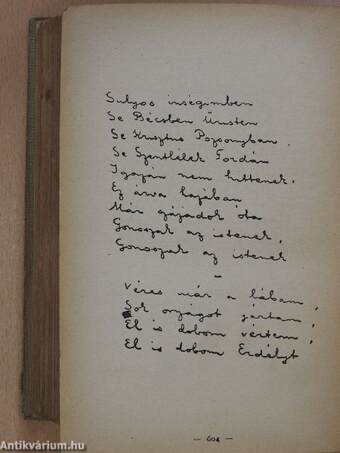 Sulyos inségimben
Se Bécsben Úristen
Se Krisztus Pozsonyban,
Se Szentlélek Tordán
Igazán nem hittenek.
Ez árva hajában
Már gázjadok óta
Gonoszak az istenek,
Gonoszak az istenek
–
Véres már a lábam,
Sok országot jártam,
El is dobom vértem,
El is dobom Erdélyt
— 604 —
Antikvárium.hu